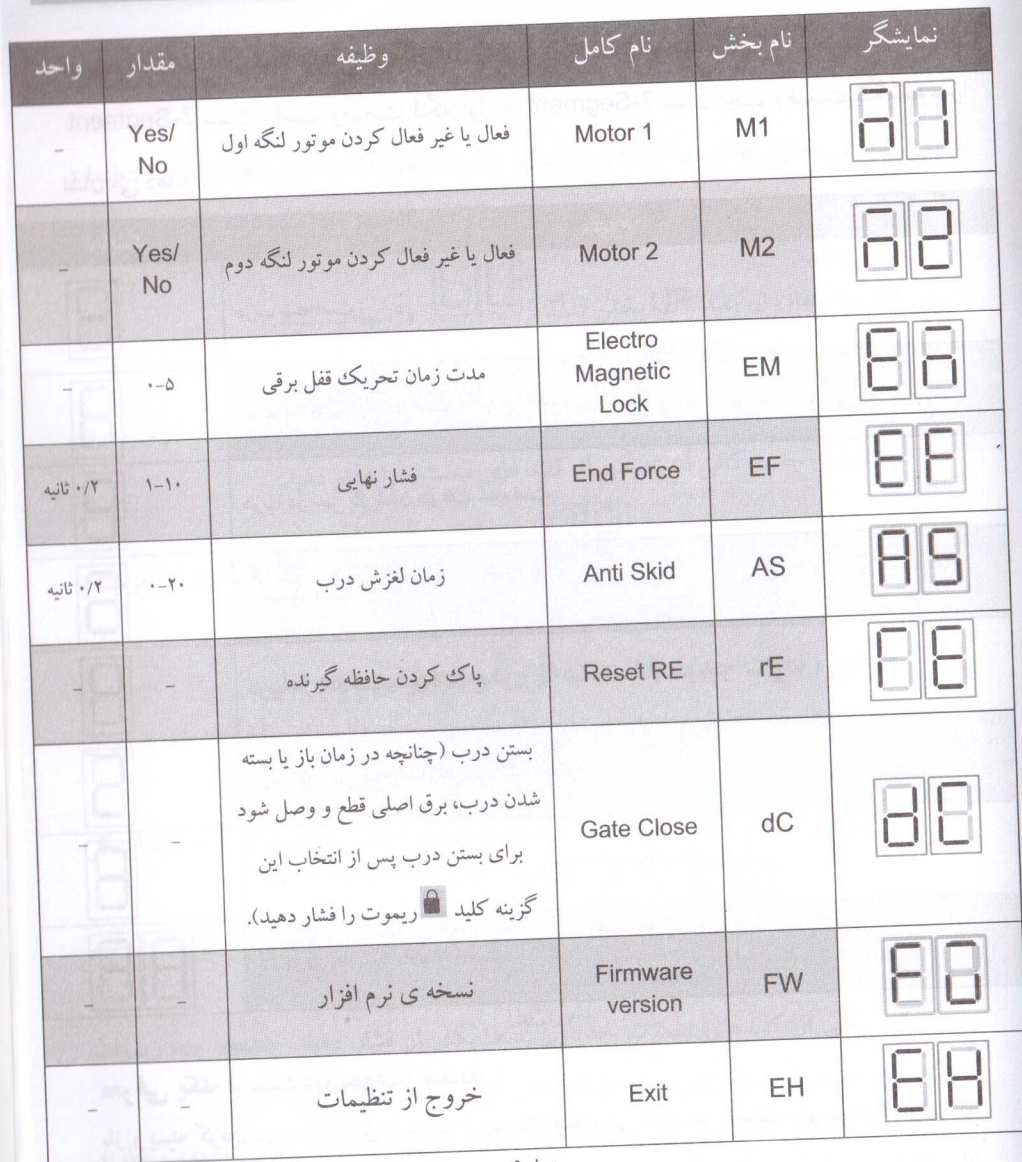 نمایشگر نام بخش نام کامل وظیفه مقدار واحد
M1 Motor 1 فعال یا غیر فعال کردن موتور لنگه اول Yes/ –
No
M2 Motor 2 فعال یا غیر فعال کردن موتور لنگه دوم Yes/ –
No
Electro
EM Magnetic مدت زمان تحریک قفل برقی ۰–۵ –
Lock
EF EF End Force فشار نهایی ۱–۱۰ ۰/۲ ثانیه
AS AS Anti Skid زمان لغزش درب ۰–۲۰ ۰/۲ ثانیه
rE rE Reset RE پاک کردن حافظه گیرنده – –
بستن درب (چنانچه در زمان باز یا بسته
شدن درب، برق اصلی قطع و وصل شود
dC dC Gate Close – –
برای بستن درب پس از انتخاب این
گزینه کلید ریموت را فشار دهید).
Firmware
FW نسخه ی نرم افزار – –
version
EH EH Exit خروج از تنظیمات – –